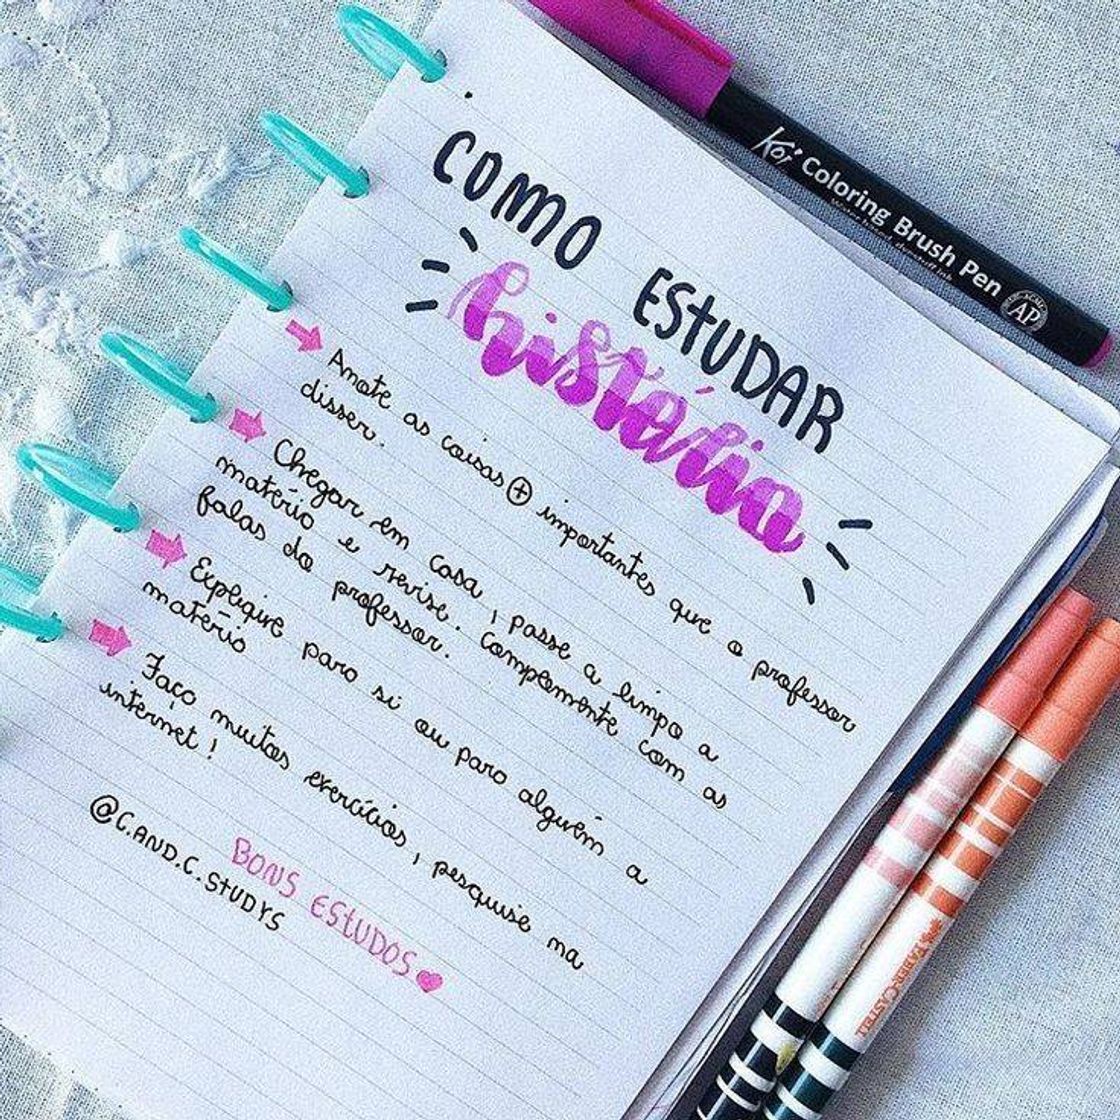 COMO ESTUDAR
história
Anote as coisas + importantes que o professor
disser.
Chegar em casa, passe a limpo a
matéria e revise. Complemente com as
falas do professor.
Explique para si ou para alguém a
matéria
Faça muitos exercícios, pesquise na
internet!
BONS ESTUDOS
@C.AND.C.STUDYS
Koi Coloring Brush Pen
AP
FABER-CASTELL